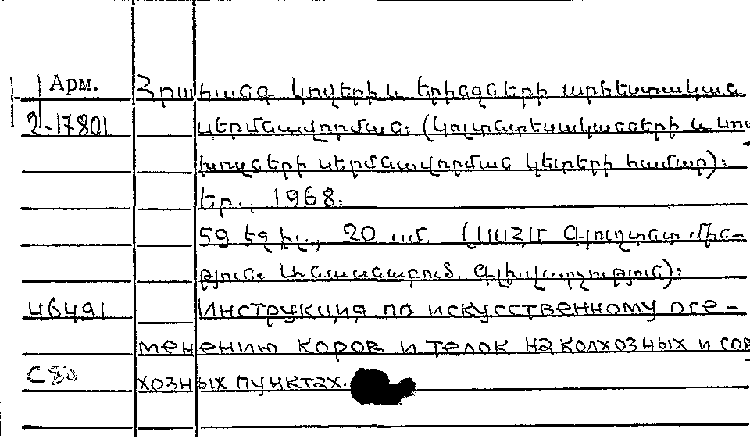 Арм. Հրահանգ կովերի և երինջների արհեստական
2-17801 սերմնավորման: (Կոլտնտեսականների և սով
խոզների սերմնավորման կետերի համար):
Եր., 1968.
59 էջ իլ., 20 սմ. (ՍՍՀՄ Գյուղտնտ. մին-
թյուն: Անասնաբուծ. գլխ. վարչություն):
46491 Инструкция по искусственному осе-
менению коров и телок на колхозных и сов
хозных пунктах.